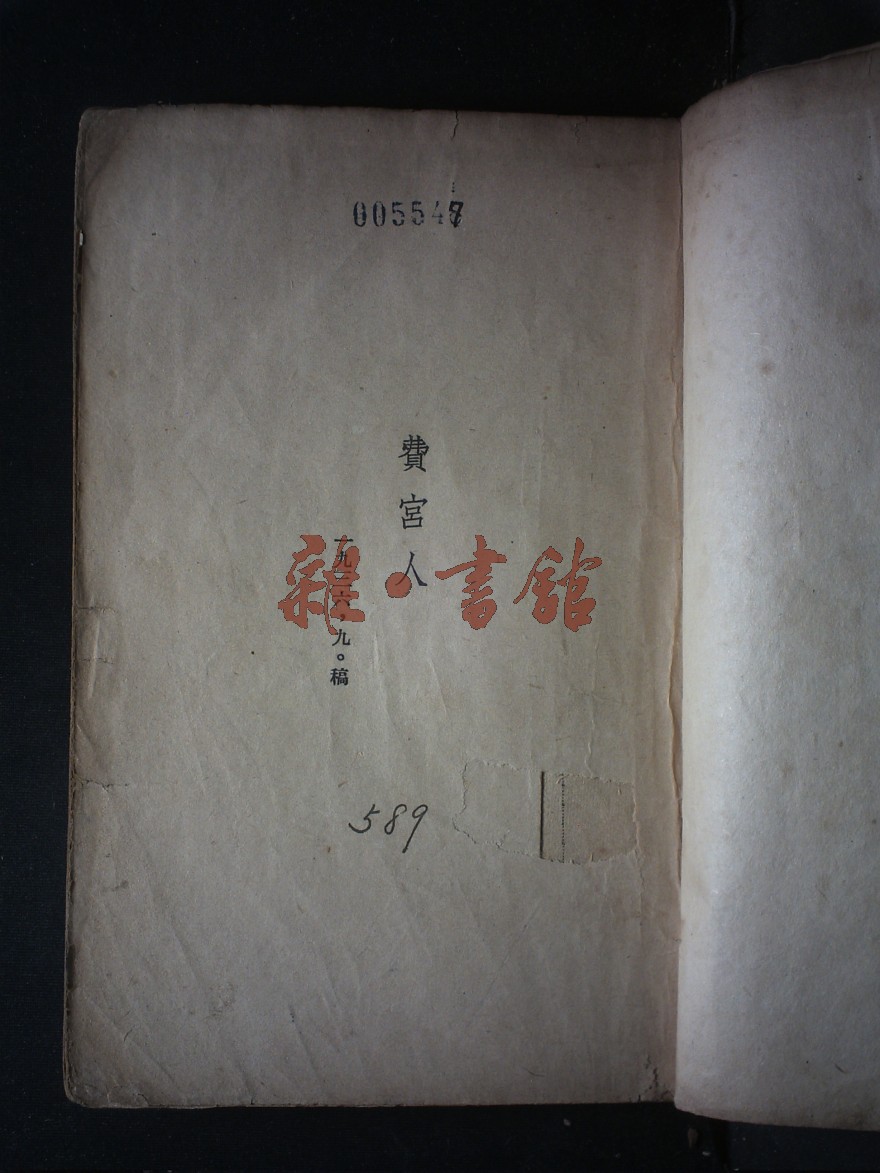 005547
費宮人
一九二六，九。稿
雜•書館
589